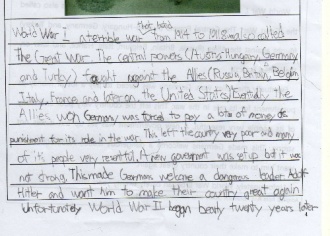 World War I a terrible war that lasted from 1914 to 1918 is also called
The Great War. The central powers (Austria Hungary, Germany
and Turkey) fought against the Allies (Russia, Britain, Belgium
Italy, France and later on, the United States) Eventually the
Allies won Germany was forced to pay a lot of money, as
punishment for its role in the war. This left the country very poor and many
of its people very resentful. A new government was set up but it was
not strong. This made Germans welcome a dangerous leader Adolf
Hitler and want him to make their country great again
Unfortunately World War II began twenty years later